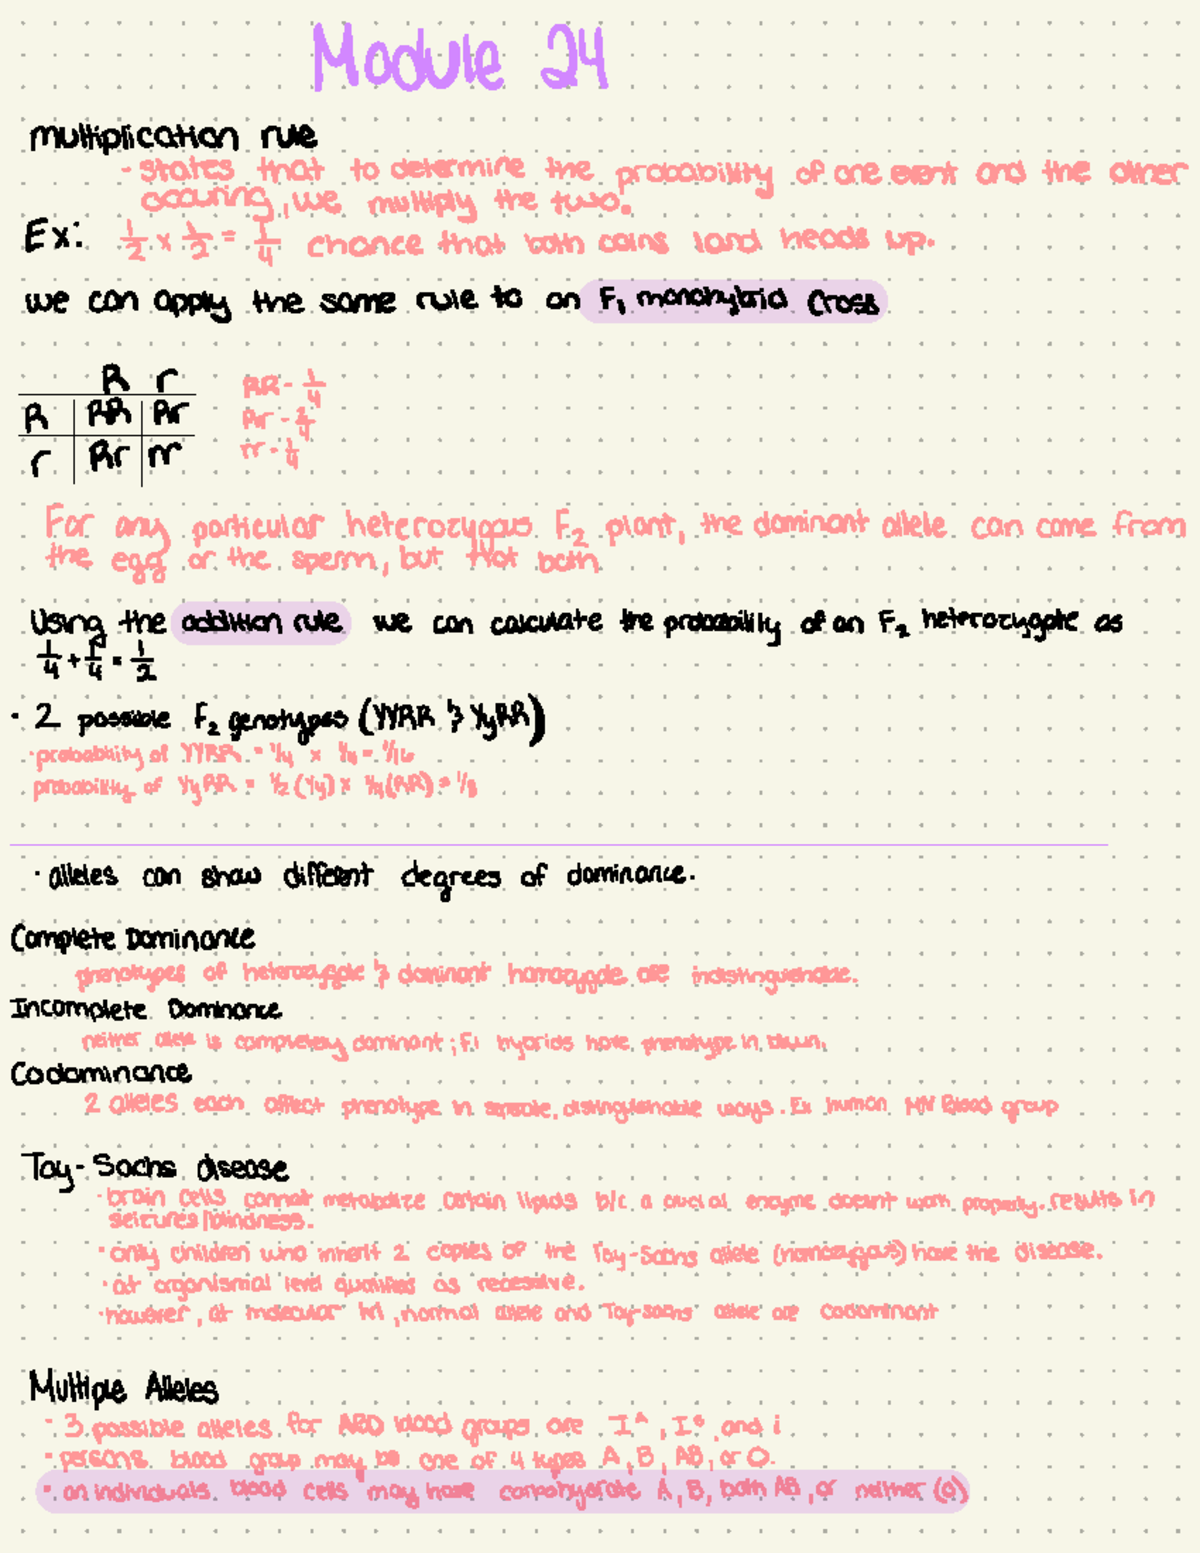 Module 24
multiplication rule
- states that to determine the probability of one event and the other
occuring, we multiply the two.
Ex: 1/2 x 1/2 = 1/4 chance that both coins land heads up.
we can apply the same rule to an F₁ monohybrid cross
R r
R RR Rr
r Rr rr
RR - 1/4
Rr - 2/4
rr - 1/4
For any particular heterozygous F₂ plant, the dominant allele can come from
the egg or the sperm, but not both
Using the addition rule we can calculate the probability of an F₂ heterozygote as
1/4 + 1/4 = 1/2
· 2 possible F₂ genotypes (YYRR & YyRR)
· probability of YYRR = 1/4 x 1/4 = 1/16
probability of YyRR = 1/2 (Yy) x 1/4 (RR) = 1/8
· alleles can show different degrees of dominance.
Complete Dominance
phenotypes of heterozygote & dominant homozygote are indistinguishable.
Incomplete Dominance
neither allele is completely dominant; F1 hybrids have phenotype in btwn.
Codominance
2 alleles each affect phenotype in separate, distinguishable ways. Ex human MN Blood group
Tay-Sachs disease
· brain cells cannot metabolize certain lipids b/c a crucial enzyme doesnt work properly. results in
seizures/blindness.
· only children who inherit 2 copies of the Tay-Sachs allele (homozygous) have the disease.
· at organismal level qualifies as recessive.
· however, at molecular lvl, normal allele and Tay-sachs allele are codominant
Multiple Alleles
- 3 possible alleles for ABO blood groups are Iᴬ, Iᴮ, and i
- persons blood group may be one of 4 types A, B, AB, or O.
· an individuals blood cells may have carbohydrate A, B, both AB, or neither (O)